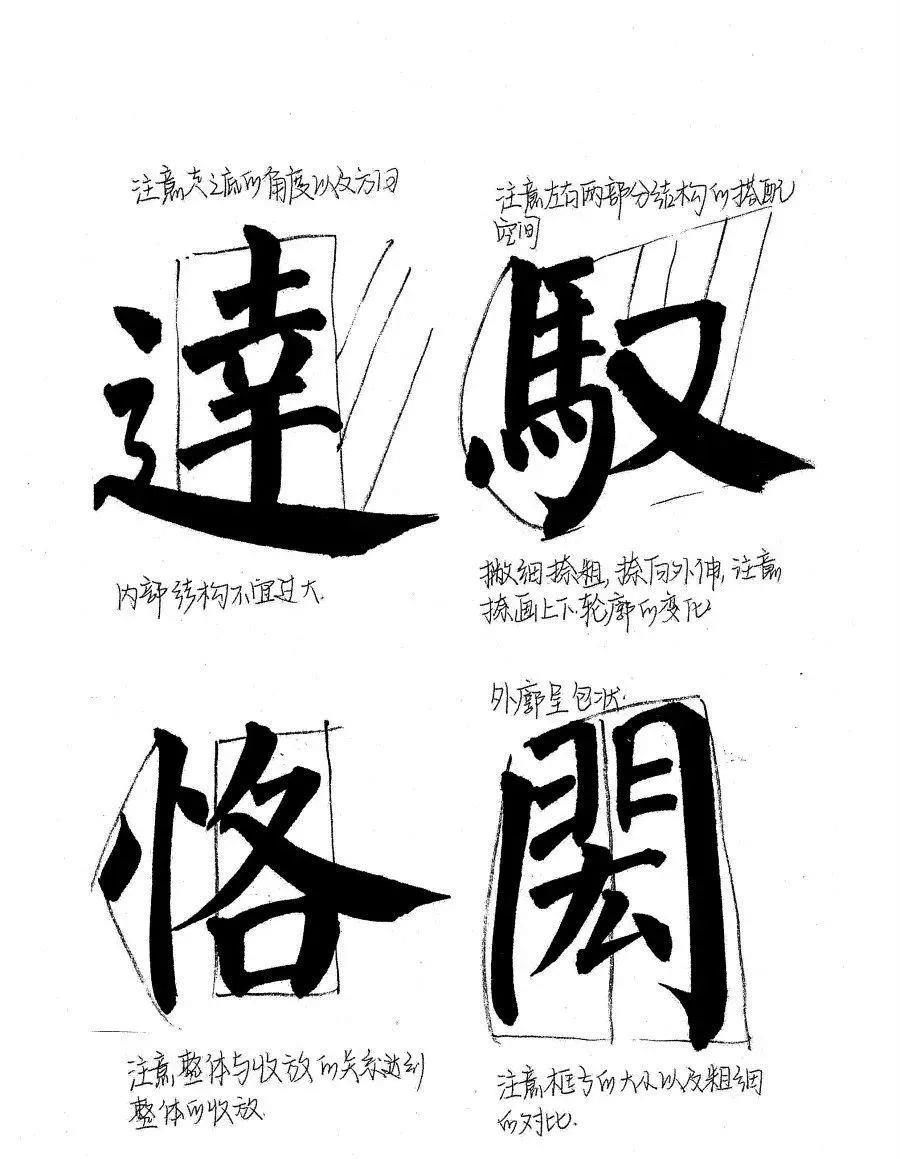 注意走之底的角度以及方向
達
内部结构不宜过大.
注意左右两部分结构的搭配
空间
馭
撇细捺粗,捺向外伸,注意
捺画上下轮廓的变化
恪
注意整体与收放的关系达到
整体的收放.
外廓呈包状.
閎
注意框方的大小以及粗细
的对比.